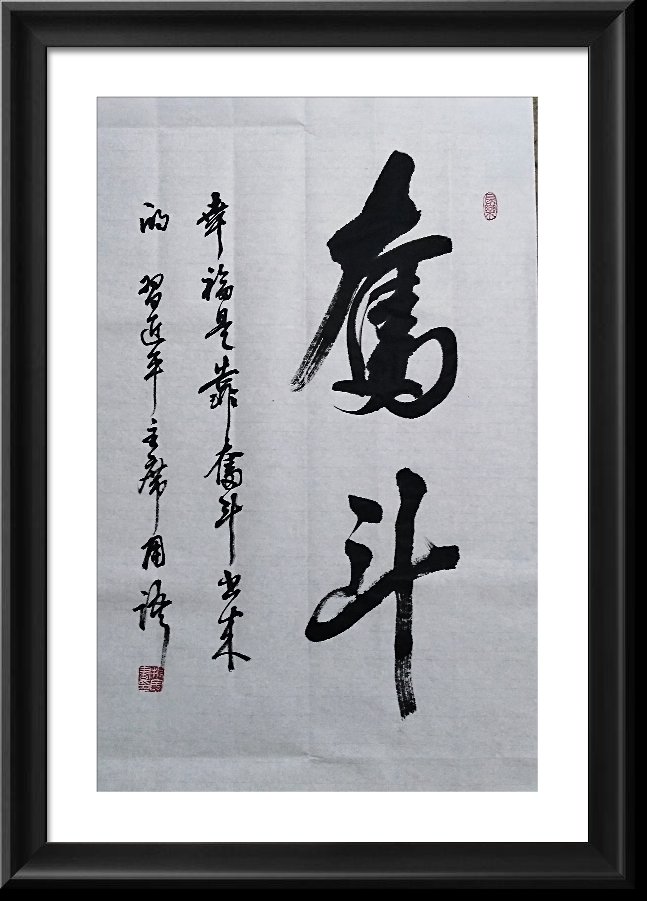 奮斗
幸福是靠奮斗出来
的 習近平主席用語